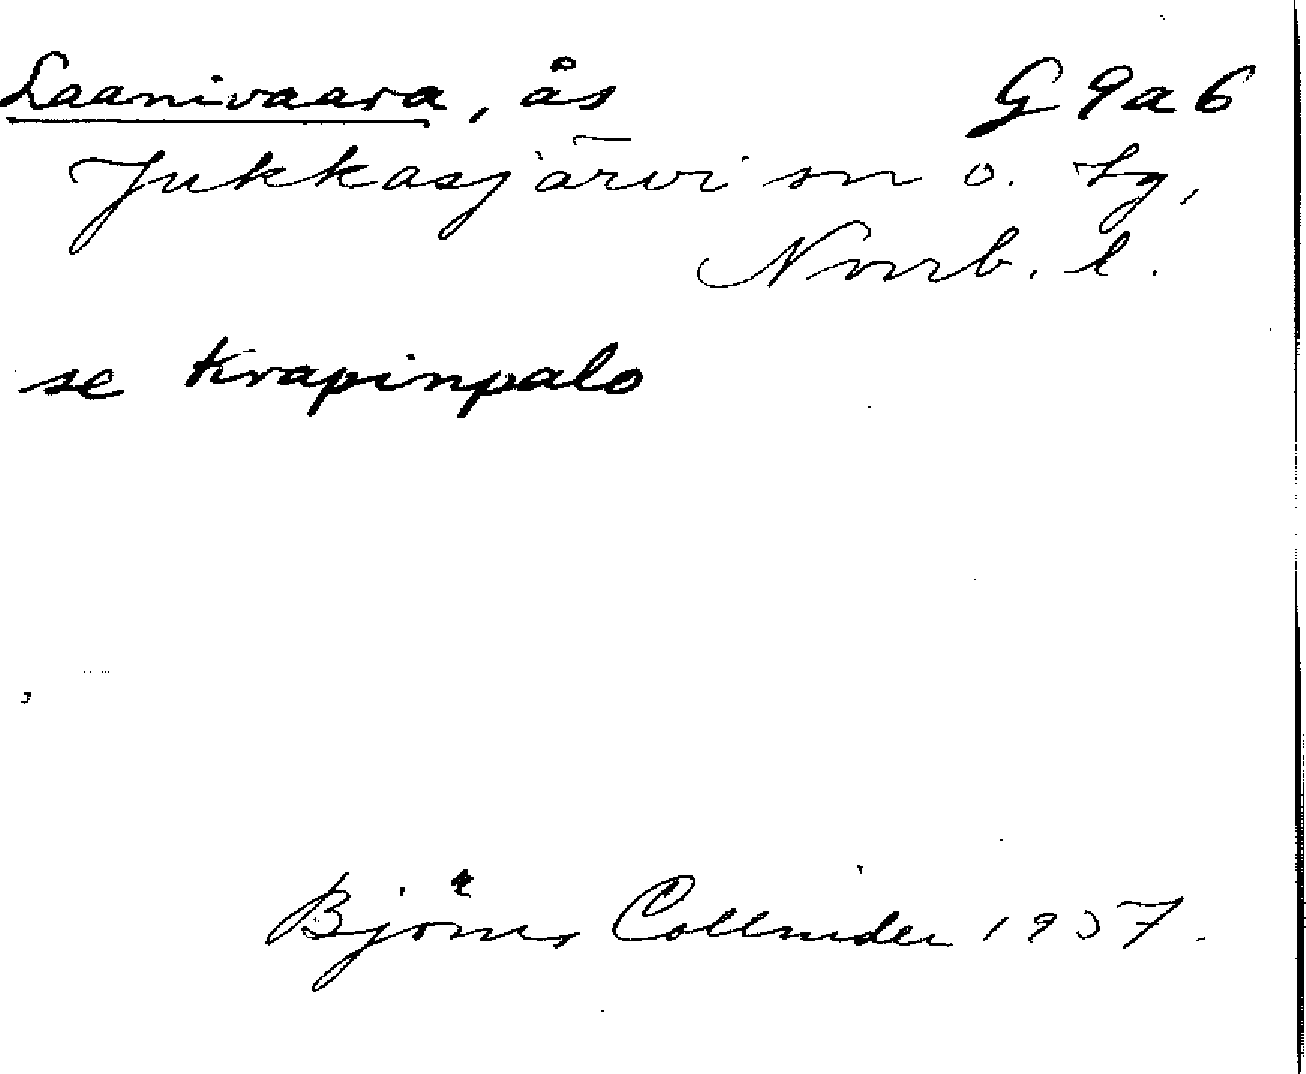 Laanivaara, ås G 9a6
Jukkasjärvi sn o. tg,
Norrb. l.
se Krapinpalo
Björn Collinder 1957.